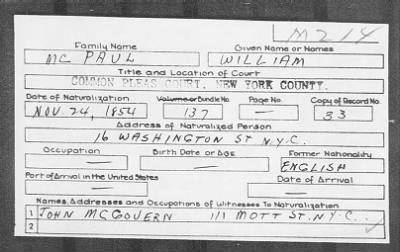 M214
Family Name Given Name or Names
MC PAUL WILLIAM
Title and Location of Court
COMMON PLEAS COURT, NEW YORK COUNTY.
Date of Naturalization Volume or Bundle No. Page No. Copy of Record No.
NOV. 24, 1854 137 — 33
Address of Naturalized Person
16 WASHINGTON ST N.Y.C.
Occupation Birth Date or Age Former Nationality
— — ENGLISH
Port of Arrival in the United States Date of Arrival
— —
Names, Addresses and Occupations of Witnesses To Naturalization
1 JOHN MCGOVERN 111 MOTT ST. N.Y.C.
2